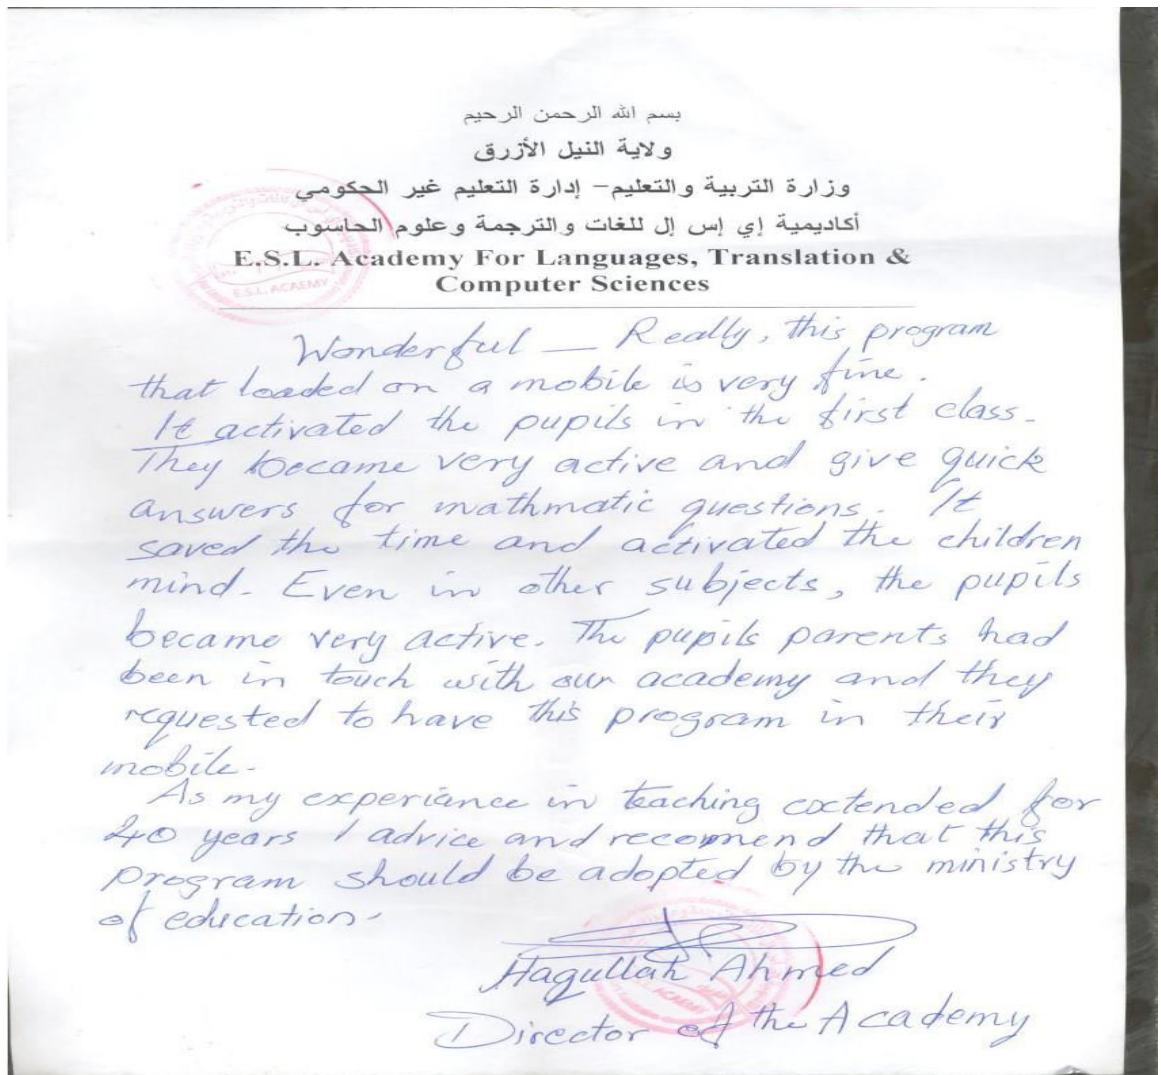 بسم الله الرحمن الرحيم
ولاية النيل الأزرق
وزارة التربية والتعليم- إدارة التعليم غير الحكومي
أكاديمية إي إس إل للغات والترجمة وعلوم الحاسوب
E.S.L. Academy For Languages, Translation &
Computer Sciences
E.S.L. ACAEMY
Wonderful — Really, this program
that loaded on a mobile is very fine.
It activated the pupils in the first class.
They became very active and give quick
answers for mathmatic questions. It
saved the time and activated the children
mind. Even in other subjects, the pupils
became very active. The pupils parents had
been in touch with our academy and they
requested to have this program in their
mobile.
As my experiance in teaching extended for
40 years I advice and recomend that this
program should be adopted by the ministry
of education.
Haqullah Ahmed
Director of the Academy